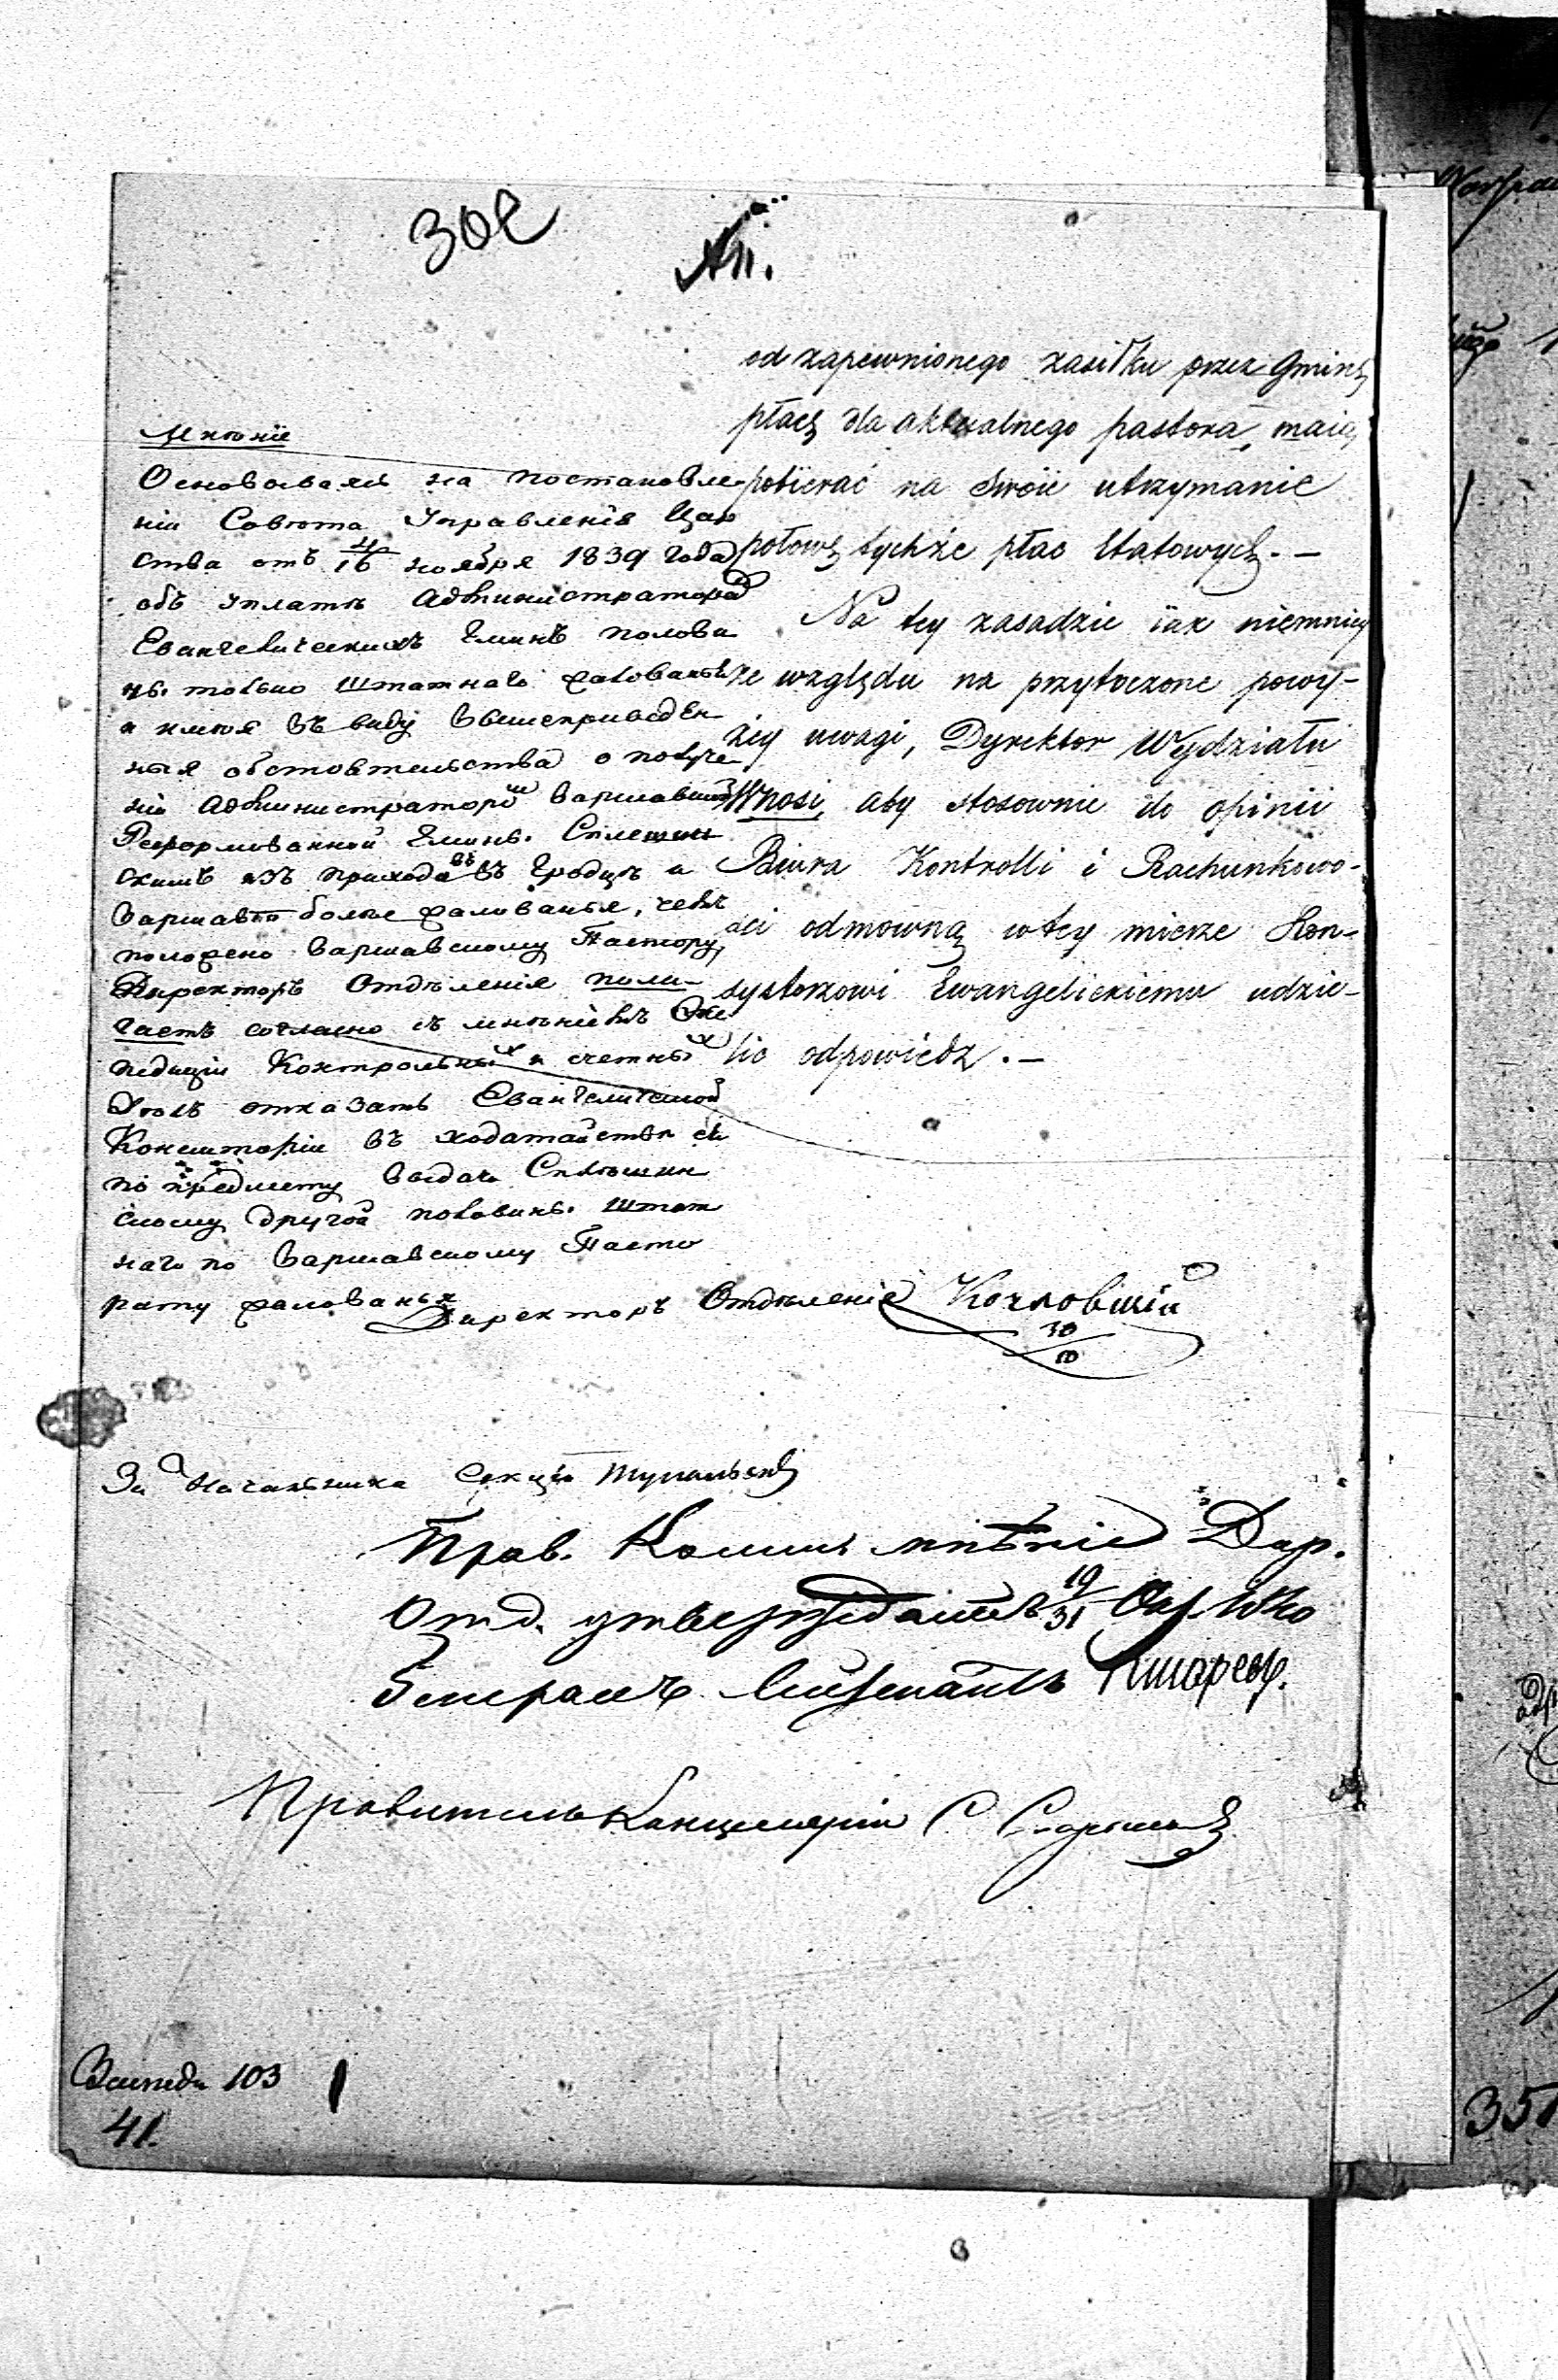 302
Мнѣніе
Основываясь на постановле-
ніи Совѣта Управленія Цар
ства отъ 4/16 ноября 1839 года
объ уплатѣ Администраторамъ
Евангелическихъ Гминъ полови
ны только штатнаго жалованья
и имѣя въ виду вышеприведен
ныя обстоятельства о получе
ніи Администраторомъ Варшавской
Реформованной Гмины Сплешин
скимъ изъ прихода въ Гродцѣ и
Варшавѣ болѣе жалованья, чѣмъ
положено Варшавскому Пастору,
Директоръ Отдѣленія пола-
гаетъ согласно съ мнѣніемъ Экс
педиціи Контрольныхъ и счетныхъ
дѣлъ отказать Евангелической
Консисторіи въ ходатайствѣ ея
по предмету выдачи Сплѣшин
скому другой половины штат
наго по Варшавскому Пасто
рату жалованья
od zapewnionego zasiłku przez Gminę
płacę dla aktualnego pastora, maią
pobierać na swoie utrzymanie
połowę tychże płac etatowych. —
Na tey zasadzie iak niemniey
ze względu na przytoczone powy-
żey uwagi, Dyrektor Wydziału
Wnosi, aby stosownie do opinii
Biura Kontrolli i Rachunkowo-
ści odmówną w tey mierze Kon-
systorzowi Ewangelickiemu udzie-
lić odpowiedź. —
Директоръ Отдѣленія
30/10
За Начальника Секціи
Прав. Комис. мнѣніе Дир.
Отд. утверждаетъ 19/31
Генералъ Лейтенантъ
Правитель Канцеляріи
103
41.
351